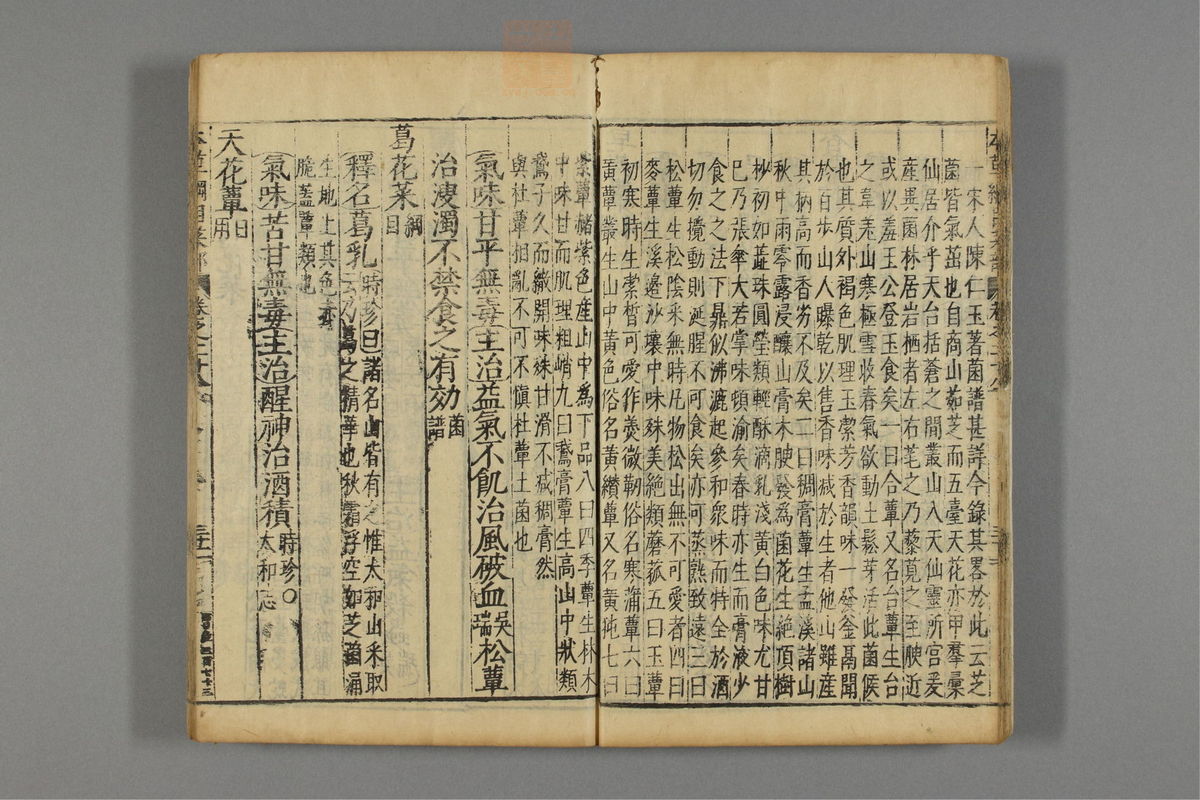 一宋人陳仁玉著菌譜甚詳今錄其畧於此云芝
菌皆氣茁也自商山茹芝而五臺天花亦甲羣彙
仙居介乎天台括蒼之間叢山入天仙靈所宮爰
產異菌林居岩栖者左右芼之乃藜莧之至腴近
或以羞王公登玉食矣一曰合蕈又名台蕈生台
之韋羌山寒極雪收春氣欲動土鬆芽活此菌候
也其質外褐色肌理玉潔芳香韻味一發釜鬲聞
於百步山人曝乾以售香味減於生者他山雖產
其柄高而香劣不及矣二曰稠膏蕈生孟溪諸山
秋中雨零露浸釀山膏木腴發爲菌花生絶頂樹
杪初如蕋珠圓瑩類輕酥滴乳淺黄白色味尤甘
巳乃張傘大若掌味頓渝矣春時亦生而膏液少
食之之法下鼎似沸漉起參和衆味而特全於酒
切勿攪動則涎腥不可食矣亦可蒸熟致遠三曰
松蕈生松陰采無時凡物松出無不可愛者四曰
麥蕈生溪邊沙壤中味殊美絶類蘑菰五曰玉蕈
初寒時生潔晳可愛作羹微韌俗名寒蒲蕈六曰
黄蕈叢生山中黄色俗名黄纉蕈又名黄㹠七曰
紫蕈赭紫色產山中爲下品八曰四季蕈生林木
中味甘而肌理粗峭九曰鵞膏蕈生高山中狀類
鵞子久而繖開味殊甘滑不減稠膏然
與杜蕈相亂不可不愼杜蕈土菌也
氣味甘平無毒主治益氣不飢治風破血吳瑞松蕈
治溲濁不禁食之有効菌譜
葛花菜綱目
釋名葛乳時珍曰諸名山皆有之惟太和山采取
云乃葛之精華也秋霜浮空如芝菌涌
生地上其色赤
脆蓋蕈類也
氣味苦甘無毒主治醒神治酒積時珍○太和志
天花蕈日用